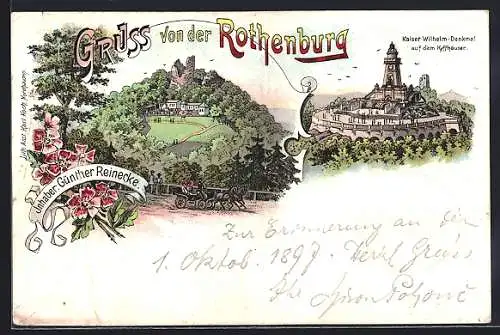 Gruss von der Rothenburg
Kaiser Wilhelm-Denkmal
auf dem Kyffhäuser.
Inhaber: Günther Reinecke.
Zur Erinnerung an den
1. Oktob. 1897. Herzl. Gruss